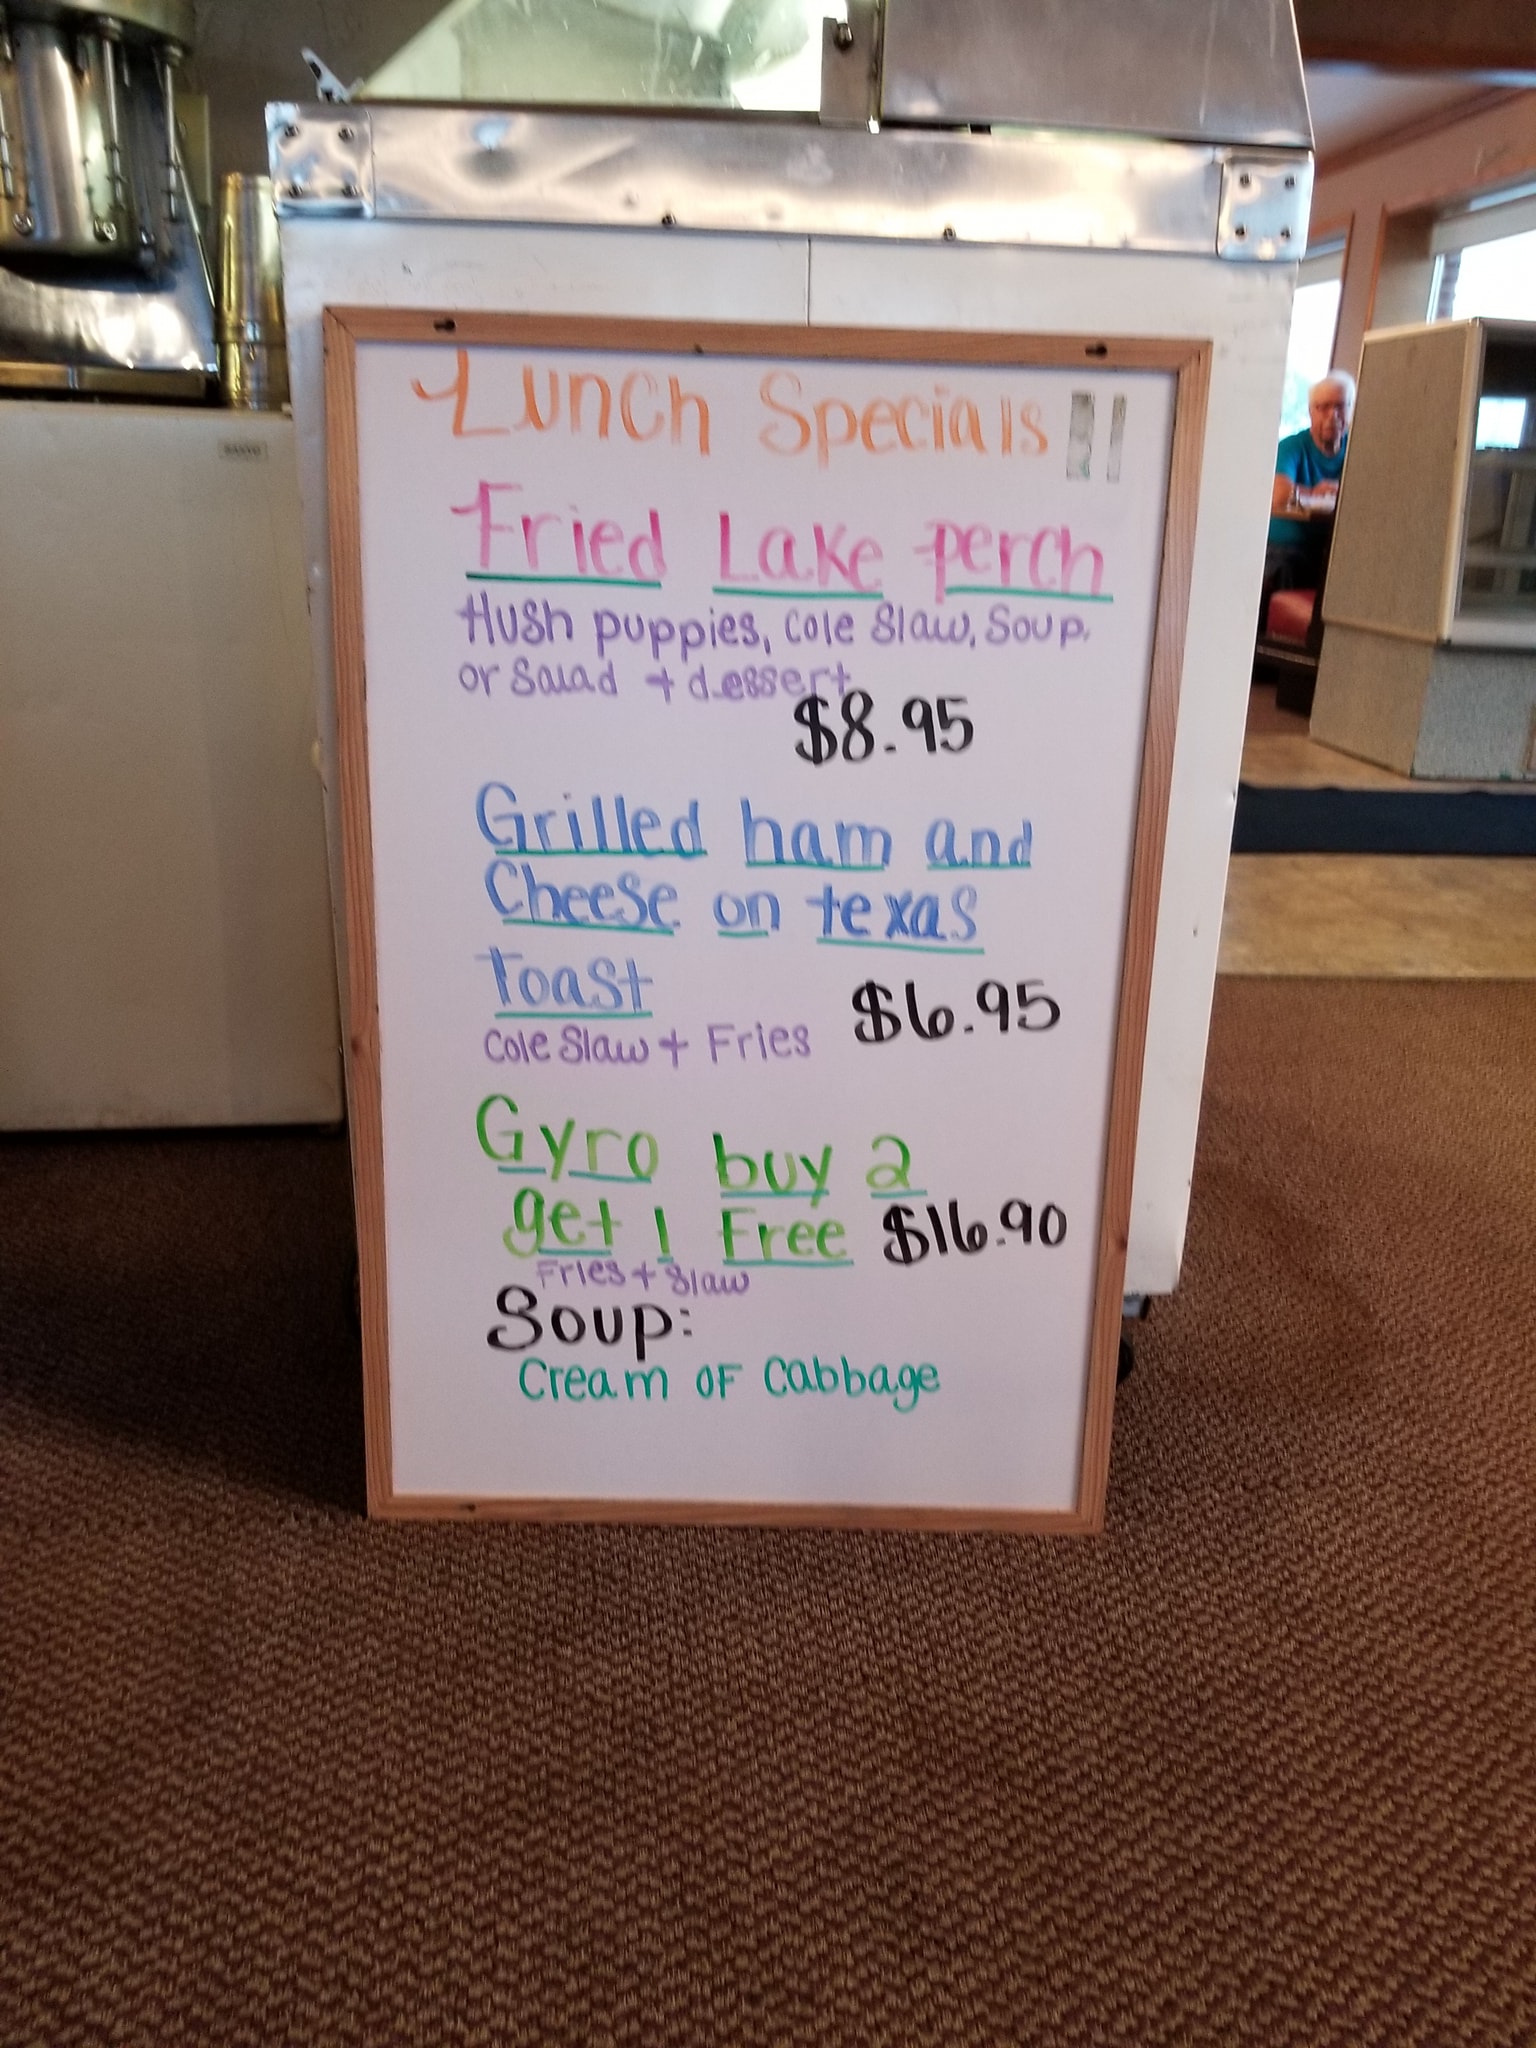 Lunch Specials
Fried Lake perch
Hush puppies, Cole Slaw, Soup,
or Salad + dessert
$8.95
Grilled ham and
Cheese on texas
Toast
$6.95
Cole Slaw + Fries
Gyro buy 2
get 1 Free $16.90
Fries + Slaw
Soup:
Cream OF Cabbage